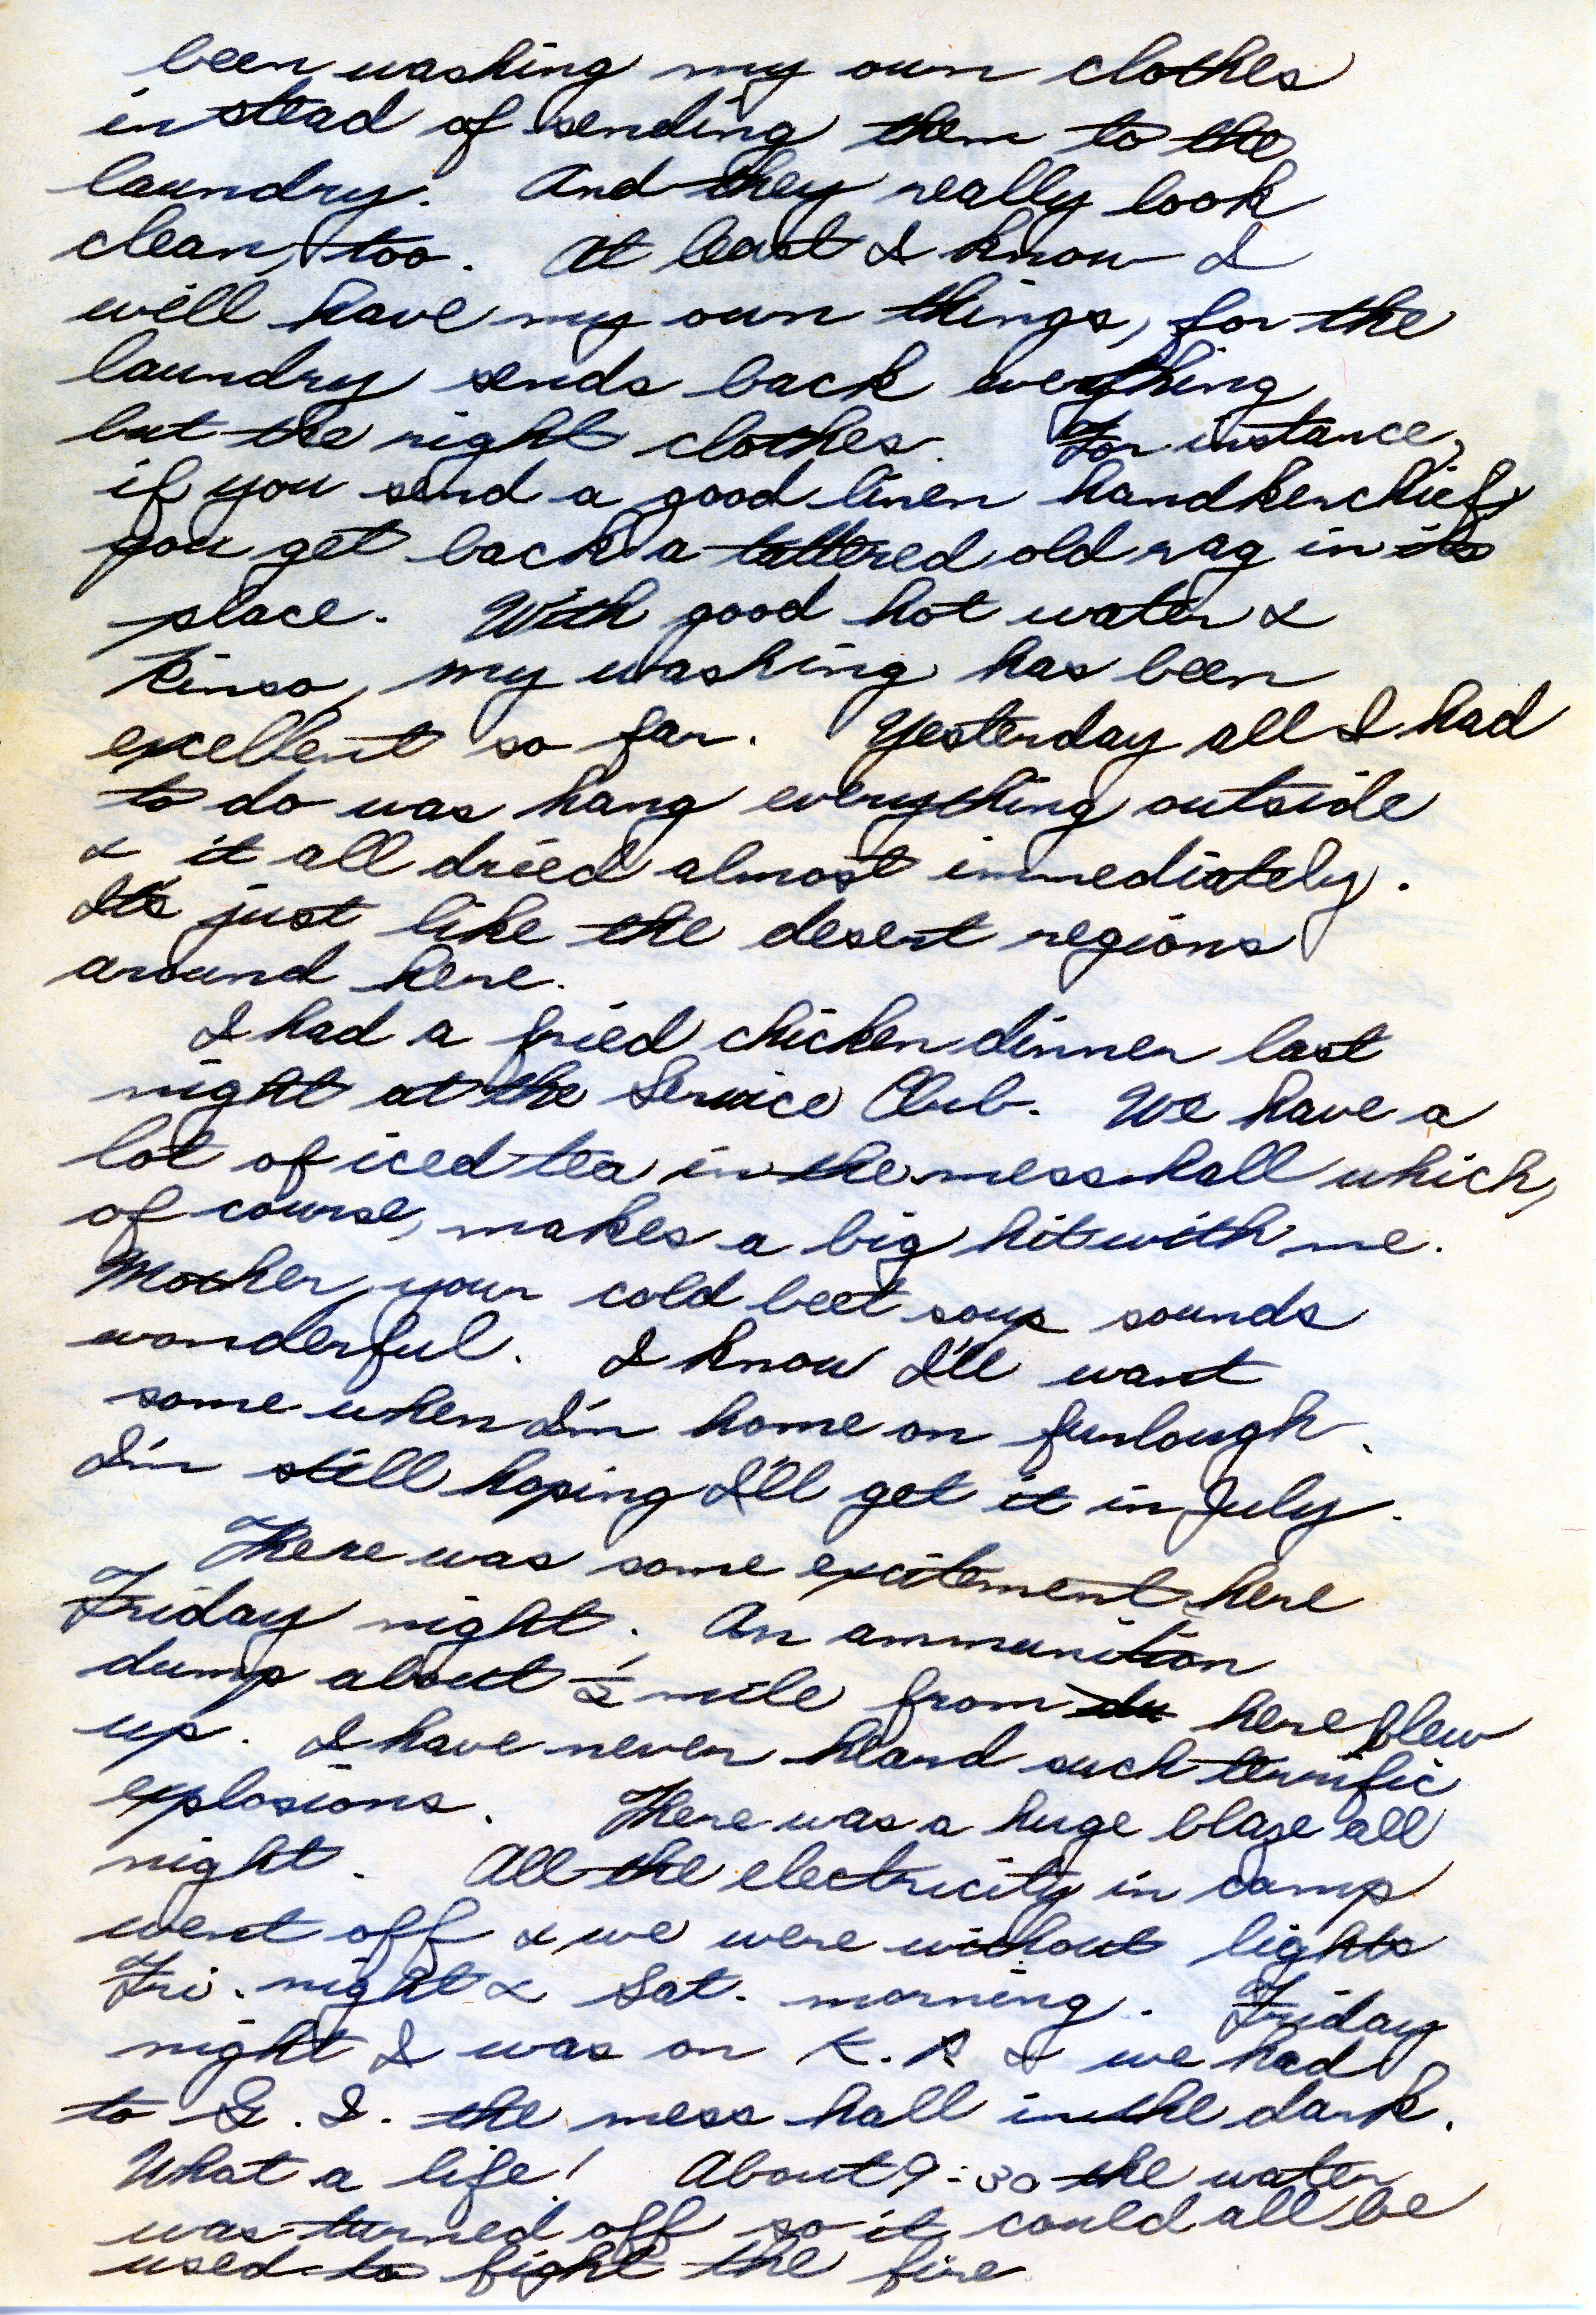 been washing my own clothes
instead of sending them to the
laundry. And they really look
clean, too. At least I know I
will have my own things, for the
laundry sends back everything
but the right clothes. For instance,
if you send a good linen handkerchief,
you get back a tattered old rag in its
place. With good hot water &
Rinso, my washing has been
excellent so far. Yesterday all I had
to do was hang everything outside
& it all dried almost immediately.
It's just like the desert regions
around here.
I had a fried chicken dinner last
night at the Service Club. We have a
lot of iced tea in the mess hall which,
of course, makes a big hit with me.
Mother, your cold beet soup sounds
wonderful. I know I'll want
some when I'm home on furlough.
I'm still hoping I'll get it in July.
There was some excitement here
Friday night. An ammunition
dump about ½ mile from here blew
up. I have never heard such terrific
explosions. There was a huge blaze all
night. All the electricity in camp
went off & we were without lights
Fri. night & Sat. morning. Friday
night I was on K.P. & we had
to G.I. the mess hall in the dark.
What a life! About 9:30 the water
was turned off so it could all be
used to fight the fire.